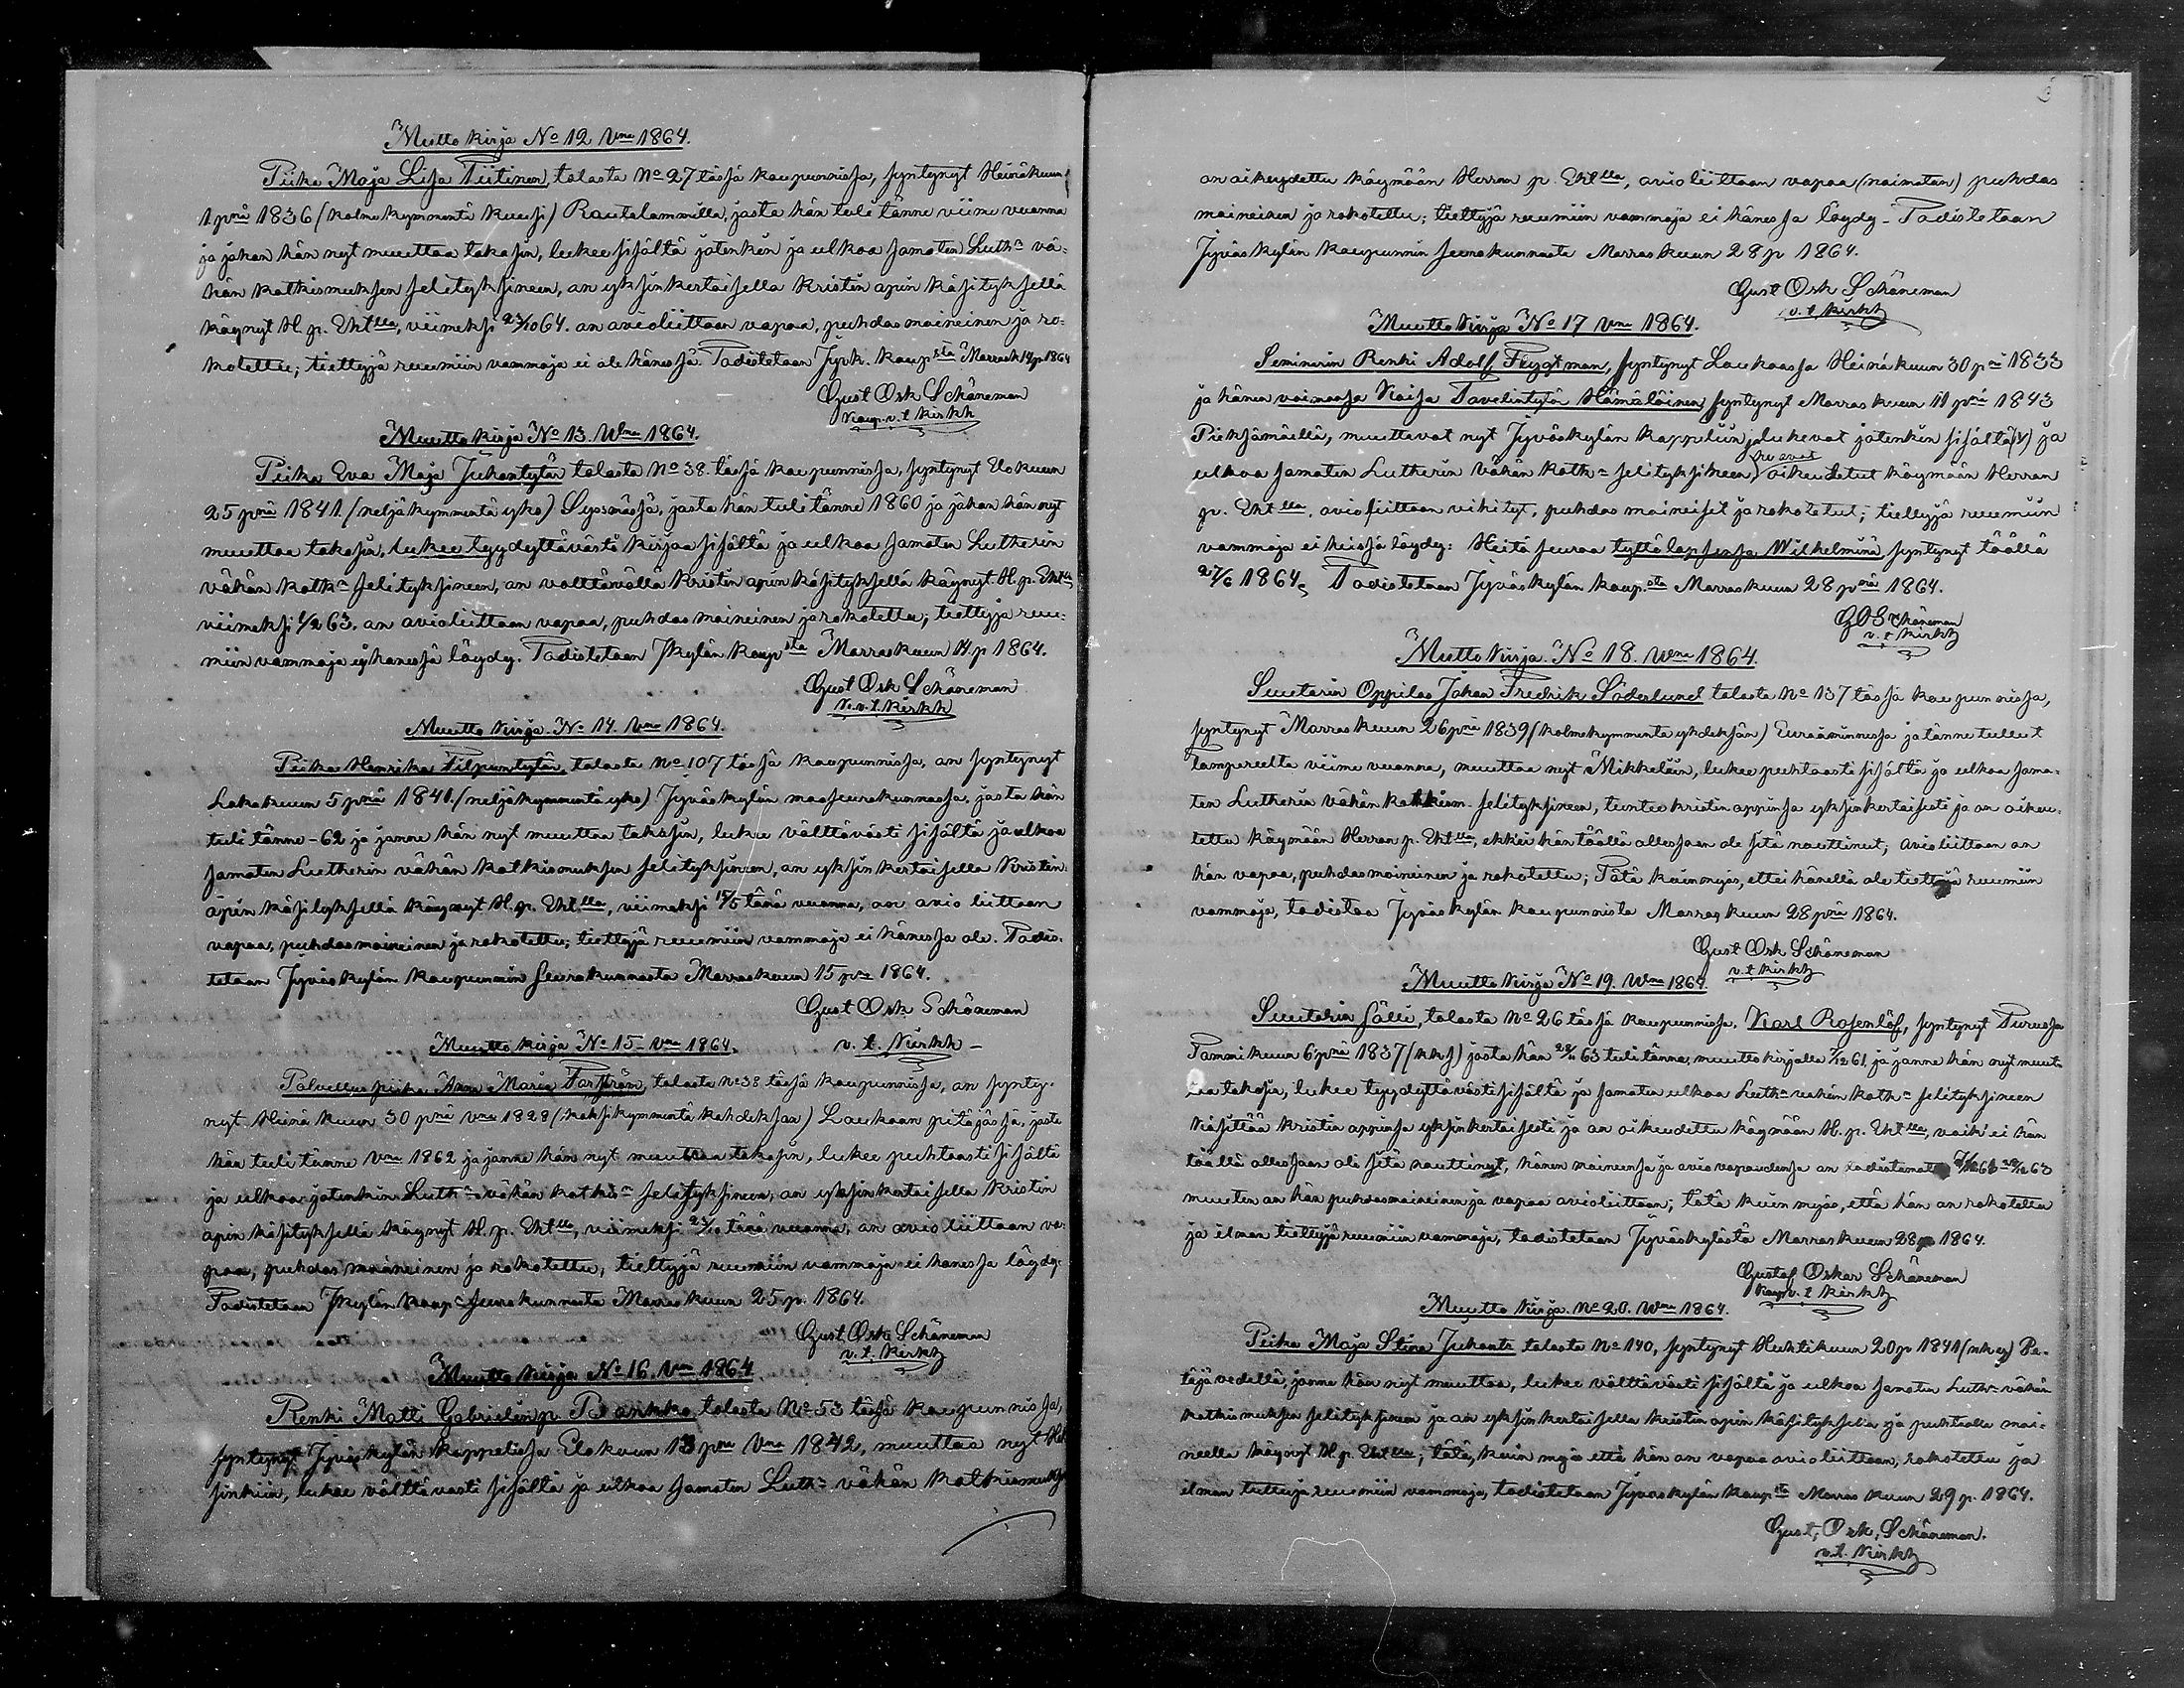 Muutto kirja No 12 Vna 1864.
Piika Maja Lisa Tiitinen, talosta No 27 tässä kaupunnissa, syntynyt Heinäkuun
1 pnä 1836 (kolme kymmentä kuusi) Rautalammilla, josta hän tuli tänne viime vuonna
ja johon hän nyt muuttaa takasin, lukee sisältä jotenkin ja ulkoa samoten Luthn vä-
hän katkismuksen selityksineen, on yksinkertaisella kristin opin käsityksellä
käynyt H. p. Ehtlla, viimeksi 23/10 64. on avioliittoon vapaa, puhdasmaineinen ja ro-
kotettu; tiettyjä ruumiin vammoja ei ole hänessä. Todistetaan Jyvk. kaupsta Marrask 14 p 1864
Gust Osk Schöneman
Kaup. v. t kirkkh
Muutto kirja No 13. Wna 1864.
Piika Eva Maja Juhontytär talosta No 38. tässä kaupunnissa, syntynyt Elokuun
25 pnä 1841 (neljäkymmentä yksi) Sysmässä, josta hän tuli tänne 1860 ja johon hän nyt
muuttaa takasin, lukee tyydyttävästi kirjaa sisältä ja ulkoa samoten Lutherin
vähän katkn selityksineen, on välttävällä kristin opin käsityksellä käynyt H. p. Ehtlla
viimeksi 1/2 63. on avioliittoon vapaa, puhdas maineinen ja rokotettu; tiettyjä ruu-
miin vammoja ei hänessä löydy. Todistetaan Jkylän kaupsta Marraskuun 14. p 1864.
Gust Osk Schöneman
K. v. t. kirkkh
Muutto kirja. No 14. Vna 1864.
Piika Henrika Filpuntytär, talosta No 107 tässä kaupunnissa, on syntynyt
Lokakuun 5 pnä 1841. (neljäkymmentä yksi) Jyväskylän maaseurakunnassa, josta hän
tuli tänne -62 ja jonne hän nyt muuttaa takasin, lukee välttävästi sisältä ja ulkoa
samoten Lutherin vähän katkismuksen selityksineen, on yksinkertaisella kristin
opin käsityksellä käynyt H. p. Ehtlla, viimeksi 15/5 tänä vuonna, on avio liittoon
vapaa, puhdasmaineinen ja rokotettu; tiettyjä ruumiin vammoja ei hänessä ole. Todis-
tetaan Jyväskylän kaupunnin seurakunnasta Marraskuun 15 pnä 1864.
Gust Osk Schöneman
v. t. Kirkkh
Muutto kirja No 15 Vna 1864.
Palvellus piika Anna Maria Farström, talosta No 38 tässä kaupunnissa, on synty-
nyt Heinä kuun 30 pnä vna 1828 (kaksikymmentä kahdeksan) Laukaan pitäjässä, josta
hän tuli tänne Vna 1862 ja jonne hän nyt muuttaa takasin, lukee puhtaasti sisältä
ja ulkoa jotenkin Luthn vähän katkisn selityksineen, on yksinkertaisella kristin
opin käsityksellä käynyt H. p. Ehtlla, viimeksi 23/10 tänä vuonna, on avio liittoon va-
paa, puhdas maineinen ja rokotettu, tiettyjä ruumiin vammoja ei hänessä löydy.
Todistetaan Jkylän kaupn seurakunnasta Marraskuun 25 p. 1864.
Gust Osk Schöneman
v. t. kirkkh
Muutto kirja No 16. Vna 1864
Renki Matti Gabrielin p. Paankko talosta No 53 tässä kaupunnissa,
syntynyt Jyväskylän kappelissa Elokuun 13 pnä Vna 1842, muuttaa nyt Hel
sinkiin, lukee välttävästi sisältä ja ulkoa samoten Luthn vähän katkismuksen
on oikeudettu käymään Herran p. Ehtlla, avioliittoon vapaa (naimaton) puhdas
maineinen ja rokotettu; tiettyjä ruumiin vammoja ei hänessä löydy - Todistetaan
Jyväskylän kaupunnin seurakunnasta Marraskuun 28 p 1864.
Gust Osk Schöneman
v. t kirkkh
Muutto kirja No 17 Vna 1864.
Seminarin Renki Adolf Flygtman, syntynyt Laukaassa Heinäkuun 30 pnä 1833
ja hänen vaimonsa Kaisa Taavelintytär Hämäläinen syntynyt Marraskuun 11 pnä 1843
Pieksämäellä, muuttavat nyt Jyväskylän kappeliin, lukevat jotenkin sisältä (v) ja
ulkoa samoten Lutherin vähän katkn selityksineen, he ovat oikeudetut käymään Herran
p. Ehtlla, avioliittoon vihityt, puhdas maineiset ja rokotetut; tiettyjä ruumiin
vammoja ei heissä löydy: Heitä seuraa tyttölapsensa Wilhelmina, syntynyt täällä
27/6 1864. Todistetaan Jyväskylän kaupsta Marraskuun 28 pnä 1864.
G O Schöneman
v. t kirkkh
Muutto kirja. No 18. Wna 1864.
Suutarin Oppilas Johan Fredrik Söderlund talosta No 137 tässä kaupunnissa,
syntynyt Marraskuun 26 pnä 1839 (kolmekymmentä yhdeksän) Euraäminnessa ja tänne tullut
Tampereelta viime vuonna, muuttaa nyt Mikkeliin, lukee puhtaasti sisältä ja ulkoa samo-
ten Lutherin vähän katkism. selityksineen, tuntee kristin oppinsa yksinkertaisesti ja on oikeu-
tettu käymään Herran p. Ehtlla, ehkei hän täällä ollessaan ole sitä nauttinut; avioliittoon on
hän vapaa, puhdasmaineinen ja rokotettu; Tätä kuin myös, ettei hänellä ole tiettyjä ruumiin
vammoja, todistaa Jyväskylän kaupunnista Marraskuun 28 pnä 1864.
Gust Osk Schöneman
v. t kirkkh
Muutto kirja No 19. Wna 1864.
Suutarin sälli, talosta No 26 tässä kaupunnissa, Karl Rosenlöf, syntynyt Turussa
Tammikuun 6 pnä 1837 (kks) josta hän 28/11 63 tuli tänne, muuttokirjalla 7/12 61, ja jonne hän nyt muut-
taa takasin, lukee tyydyttävästi sisältä ja samoten ulkoa Luthn vähän katkn selityksineen
käsittää kristin oppinsa yksinkertaisesti ja on oikeudettu käymään H. p. Ehtlla, vaik'ei hän
täällä ollessaan ole sitä nauttinut, hänen maineensa ja avio vapaudensa on todistamatta
muuten on hän puhdasmaineinen ja vapaa avioliittoon; tätä kuin myös, että hän on rokotettu
ja ilman tiettyjä ruumiin vammoja, todistetaan Jyväskylästä Marraskuun 28 p 1864.
Gustaf Oskar Schöneman
Kaup. v. t kirkkh
Muutto kirja. No 20. Wna 1864.
Piika Maja Stina Juhontr talosta No 140, syntynyt Huhtikuun 20 p 1841 (nk y) Pe-
täjävedellä, jonne hän nyt muuttaa, lukee välttävästi sisältä ja ulkoa samoten Luthn vähän
katkismuksen selityksineen ja on yksinkertaisella kristin opin käsityksellä ja puhtaalla mai-
neella käynyt H. p. Ehtlla; tätä, kuin myös että hän on vapaa avioliittoon, rokotettu ja
ilman tuttuja ruumiin vammoja, todistetaan Jyväskylän kaupsta Marraskuun 29 p. 1864.
Gust, Osk, Schöneman.
v. t. Kirkkh